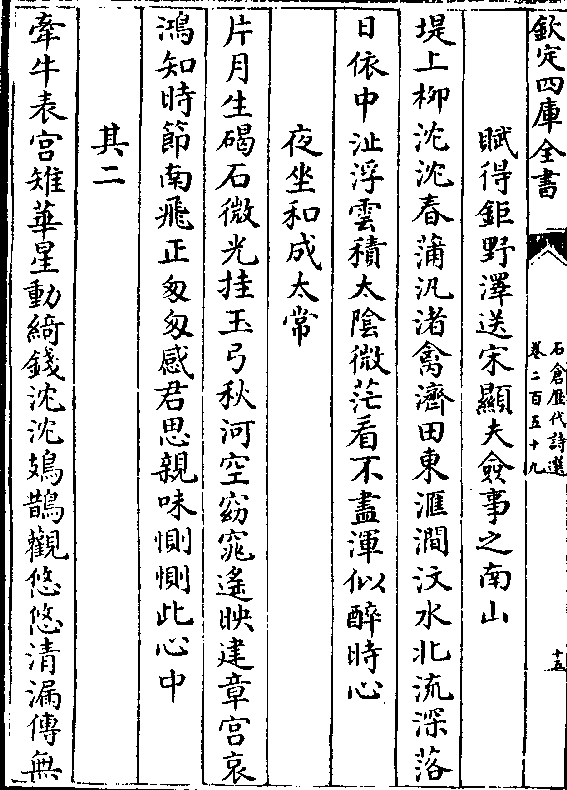 欽定四庫全書
石倉歷代詩選
卷二百五十九
十五
賦得鉅野澤送宋顯夫僉事之南山
堤上柳沈沈春蒲汎渚禽濟田東滙澗汶水北流深落
日依中沚浮雲積太陰微茫看不盡渾似醉時心
夜坐和成太常
片月生碣石微光挂玉弓秋河空窈窕遙映建章宮哀
鴻知時節南飛正匆匆感君思親味惻惻此心中
其二
牽牛表宮雉華星動綺錢沈沈鳷鵲觀悠悠清漏傳無